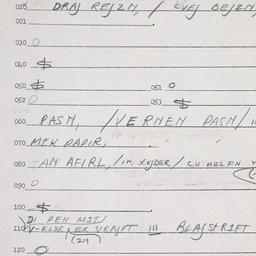 020 DRAJ REJZN, / CVEJ BEJZN,
021
030 O
040 $
050 $ 051 O
052 O 053 $
060 PASN, /VERNEN PASN/
070 MIK PAPIR,
080 AN AFIRL, /IN XEJDER/ CU HELFN
090 O
100 $
DI PEN MIT
110 V-ELKE ER SHRAJPT III BLAJSTRIFT
(24)
120 O